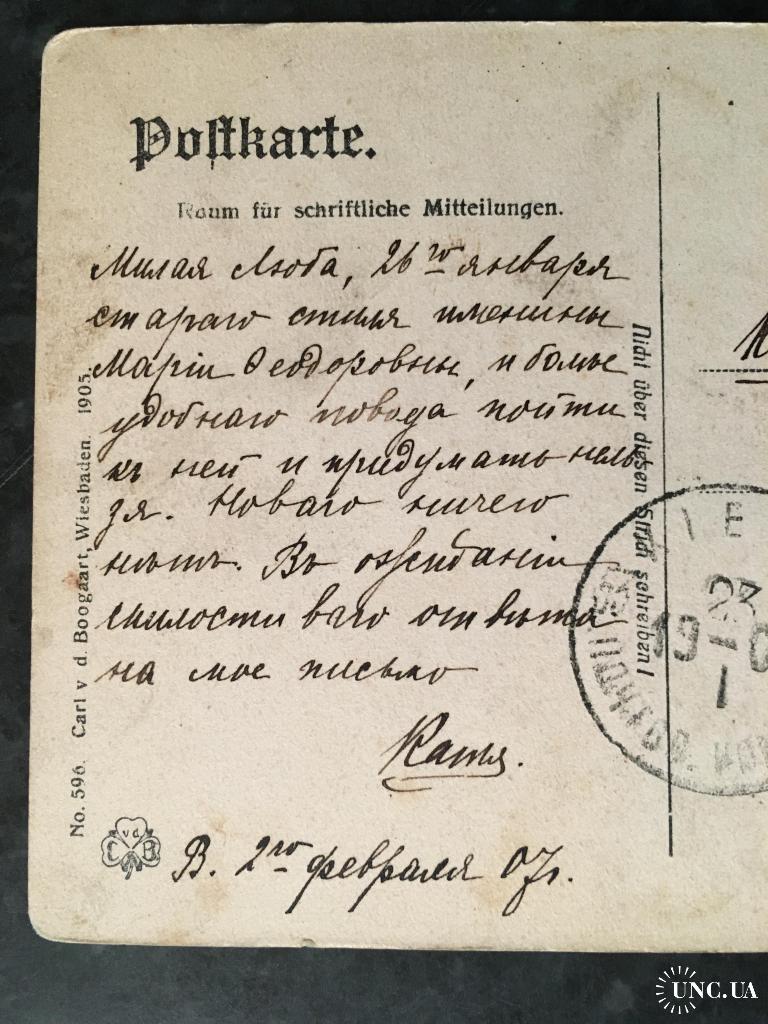 Postkarte.
Raum für schriftliche Mitteilungen.
Милая Люба, 26го января
стараго стиля именины
Маріи Ѳеодоровны, и болѣе
удобнаго повода пойти
къ ней и придумать нель
зя. Новаго ничего
нѣтъ. Въ ожиданіи
милостиваго отвѣта
на мое письмо
Катя.
В. 2го февраля 07г.
No. 596. Carl v. d. Boogaart, Wiesbaden. 1905.
C vd B
Nicht über diesen Strich schreiben!
КІЕ
23
19-0
1
UNC.UA